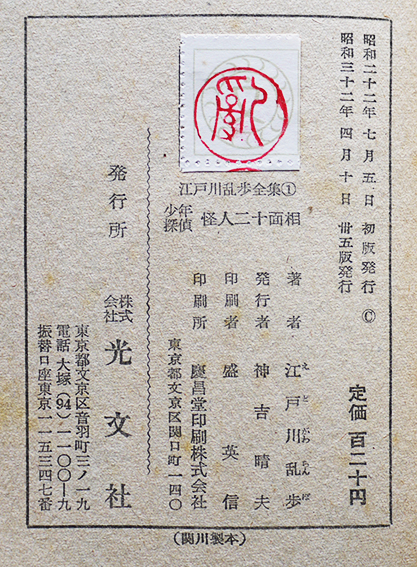 昭和二十二年七月五日 初版発行 ©
昭和三十二年四月十日 卅五版発行
定価 百二十円
江戸川乱歩全集①
少年探偵 怪人二十面相
著者 江戸川乱歩
えどがわらんぽ
発行者 神吉晴夫
印刷者 盛英信
印刷所 慶昌堂印刷株式会社
東京都文京区関口町一四〇
発行所
株式会社 光文社
東京都文京区音羽町三ノ一九
電話 大塚(94)一一〇〇—九
振替口座東京一一五三四七番
(関川製本)